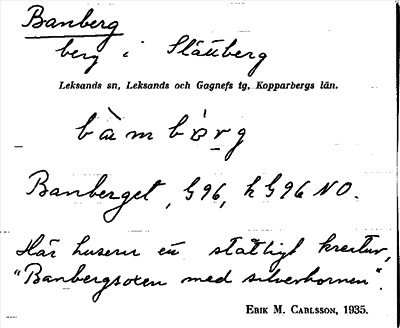 Banberg
berg i Slättberg
Leksands sn, Leksands och Gagnefs tg, Kopparbergs län.
bàmbörg
Banberget, G96, k G96 NO.
Här huserar en ståtligt kreatur,
"Banbergsoxen med silverhornen".
ERIK M. CARLSSON, 1935.